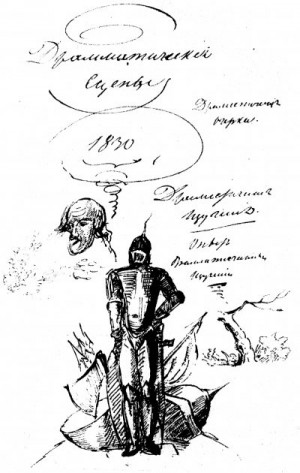 Драматическія
Сцены
1830
Драматическіе
очерки.
Драматическія
изученія
Опытъ
Драматическихъ
изученій